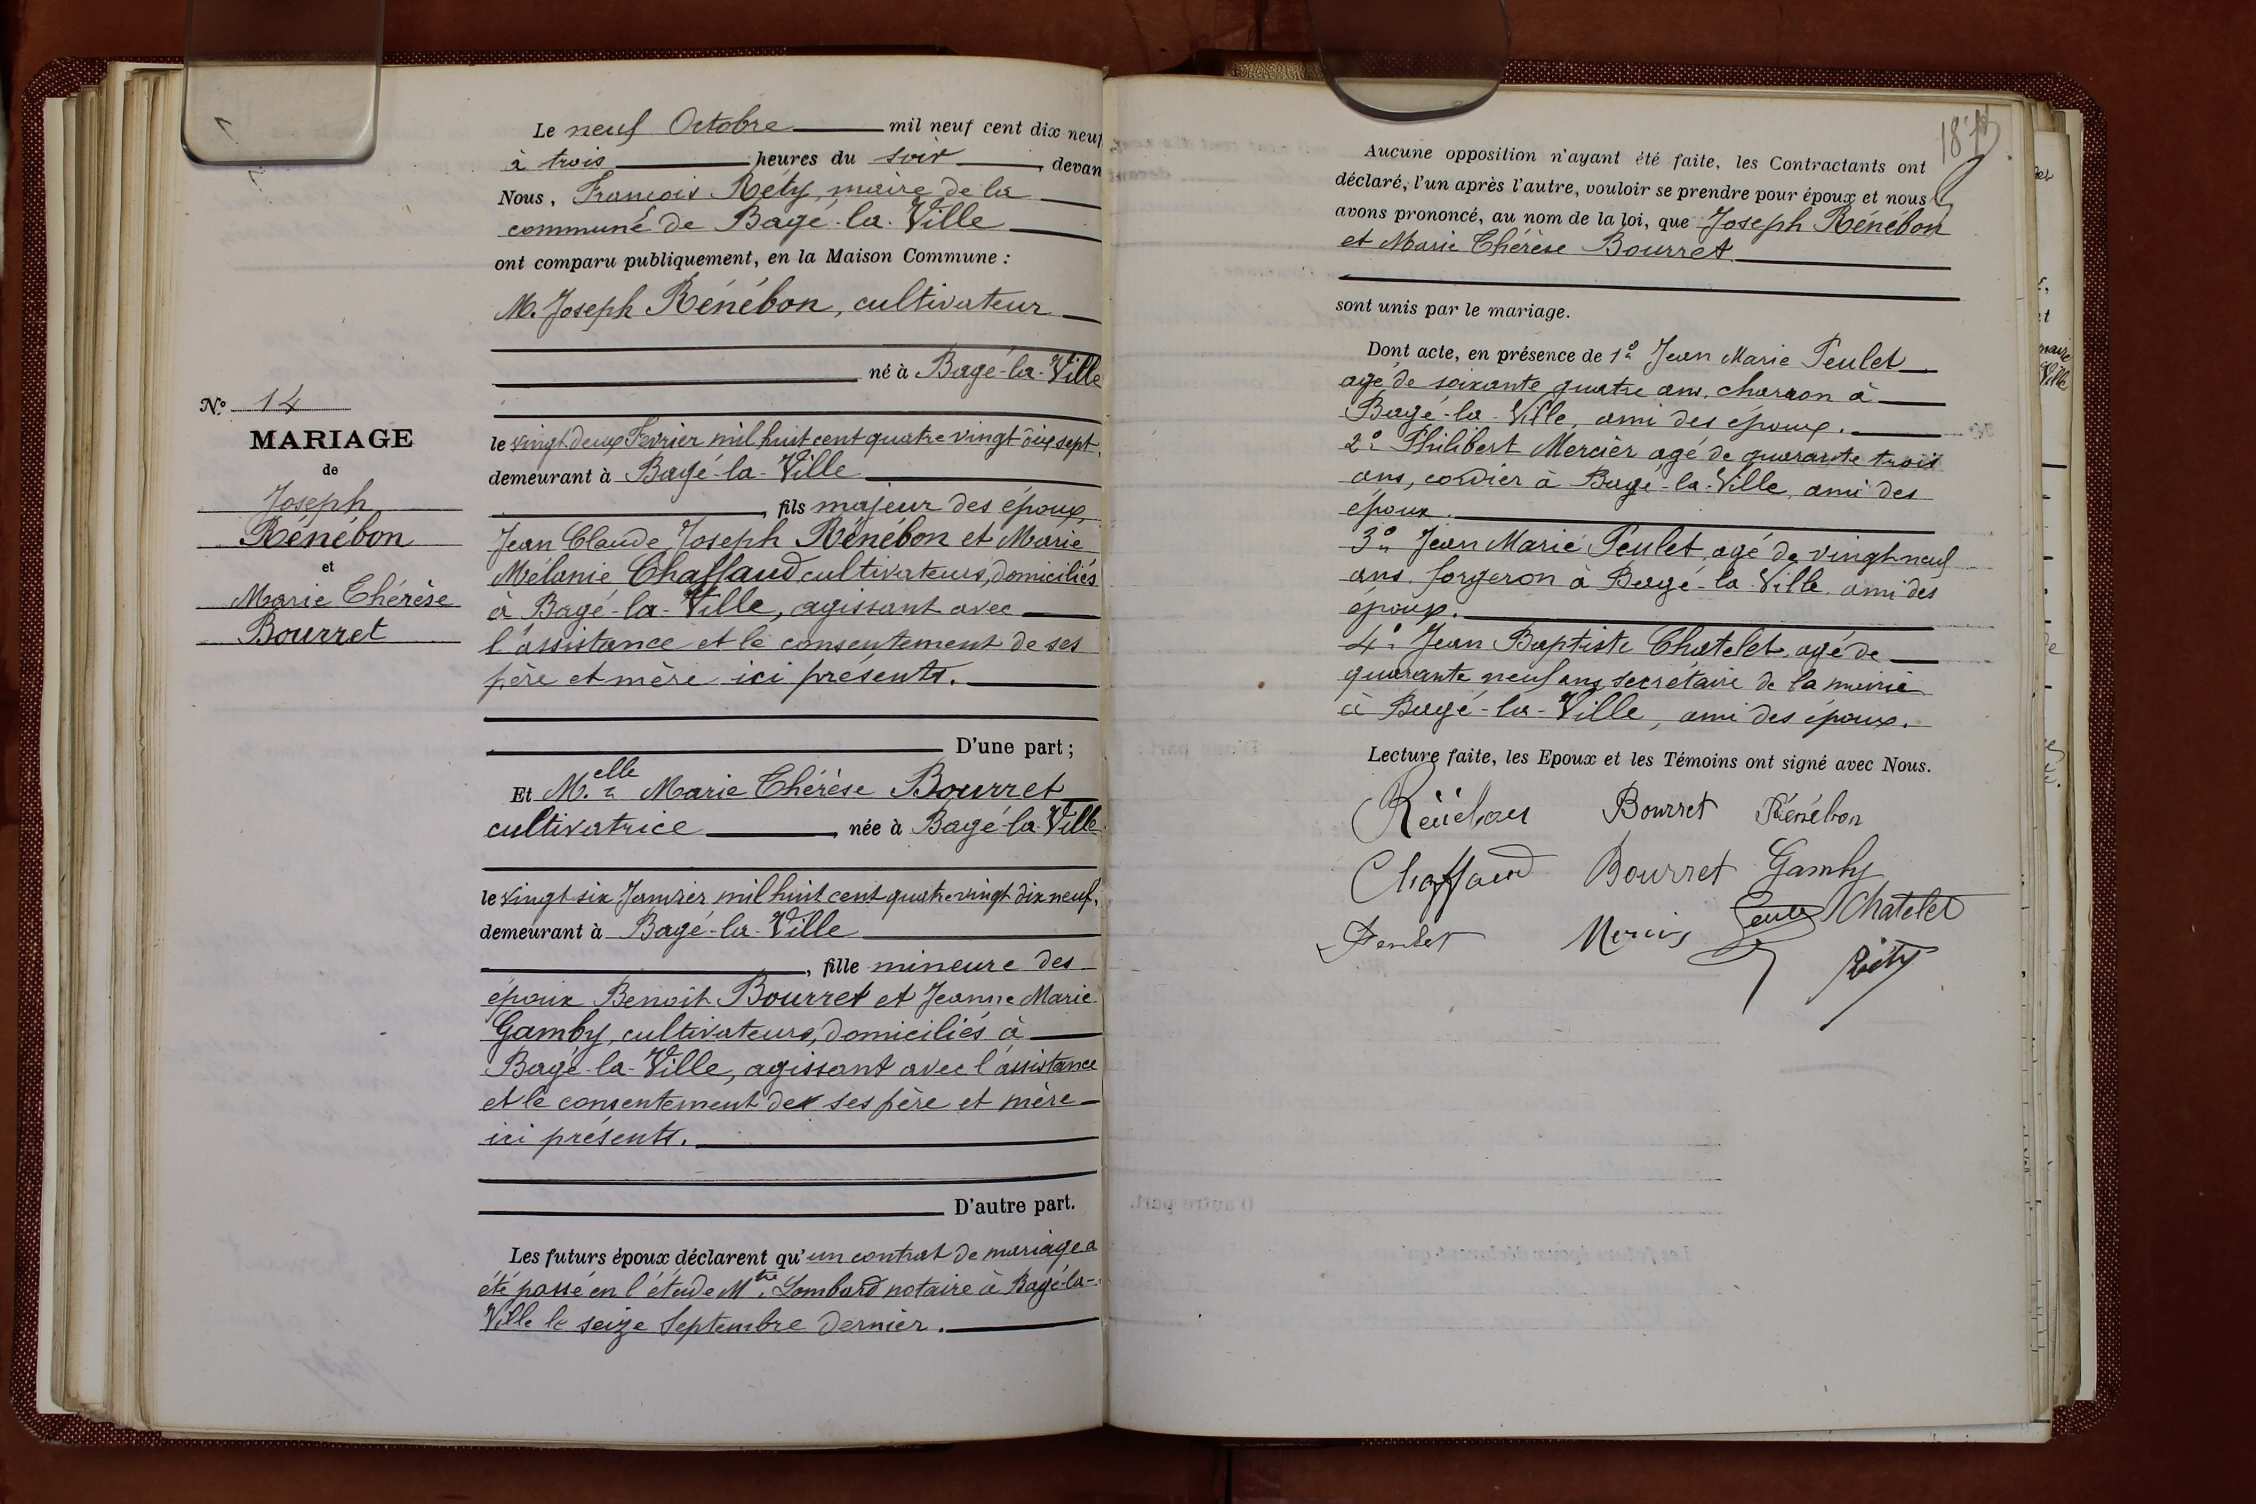 N.º 14
MARIAGE
de
Joseph
Rénébon
et
Marie Thérèse
Bourret
Le neuf Octobre mil neuf cent dix neuf
à trois heures du soir, devan
Nous, François Réty, maire de la
commune de Bagé-la-Ville
ont comparu publiquement, en la Maison Commune :
M. Joseph Rénébon, cultivateur
né à Bagé-la-Ville
le vingt deux Février mil huit cent quatre vingt dix sept,
demeurant à Bagé-la-Ville
, fils majeur des époux
Jean Claude Joseph Rénébon et Marie
Mélanie Chaffaud cultivateurs, domiciliés
à Bagé-la-Ville, agissant avec
l'assistance et le consentement de ses
père et mère ici présents.
D'une part ;
Et M.elle Marie Thérèse Bourret
cultivatrice, née à Bagé-la-Ville
le vingt six Janvier mil huit cent quatre vingt dix neuf,
demeurant à Bagé-la-Ville
, fille mineure des
époux Benoit Bourret et Jeanne Marie
Gamby, cultivateurs, domiciliés à
Bagé-la-Ville, agissant avec l'assistance
et le consentement de ses père et mère
ici présents.
D'autre part.
Les futurs époux déclarent qu'un contrat de mariage a
été passé en l'étude Mtre Lombard notaire à Bagé-la-
Ville le seize Septembre dernier.
Aucune opposition n'ayant été faite, les Contractants ont
déclaré, l'un après l'autre, vouloir se prendre pour époux et nous
avons prononcé, au nom de la loi, que Joseph Rénébon
et Marie Thérèse Bourret
sont unis par le mariage.
Dont acte, en présence de 1º Jean Marie Peulet
agé de soixante quatre ans, charron à
Bagé-la-Ville, ami des époux.
2º Philibert Mercier agé de quarante trois
ans, cordier à Bagé-la-Ville, ami des
époux.
3º Jean Marie Peulet, agé de vingt neuf
ans, forgeron à Bagé-la-Ville, ami des
époux.
4º Jean Baptiste Chatelet, agé de
quarante neuf ans, secrétaire de la mairie
à Bagé-la-Ville, ami des époux.
Lecture faite, les Epoux et les Témoins ont signé avec Nous.
Rénébon Bourret Rénébon
Chaffaud Bourret Gamby
Peulet Mercier Peulet Chatelet
Réty